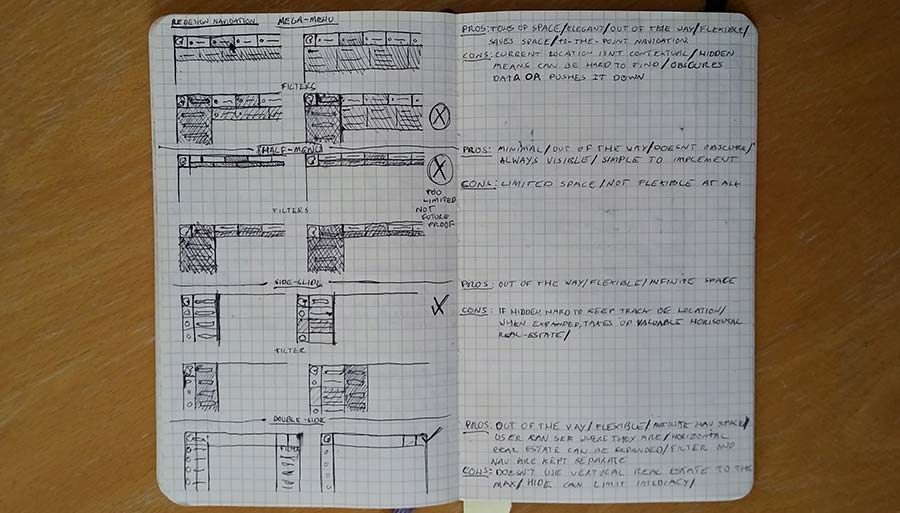 REDESIGN NAVIGATION MEGA-MENU
FILTERS
HALF-MENU
TOO
LIMITED
NOT
FUTURE
PROOF
FILTERS
SIDE-SLIDE
FILTER
DOUBLE-SLIDE
FILTER
PROS: TONS OF SPACE/ELEGANT/OUT OF THE WAY/FLEXIBLE/
SAVES SPACE/TO-THE-POINT NAVIGATION
CONS: CURRENT LOCATION ISNT CONTEXTUAL/HIDDEN
MEANS CAN BE HARD TO FIND/OBSCURES
DATA OR PUSHES IT DOWN
PROS: MINIMAL/OUT OF THE WAY/DOESNT OBSCURE/
ALWAYS VISIBLE/SIMPLE TO IMPLEMENT
CONS: LIMITED SPACE/NOT FLEXIBLE AT ALL
PROS: OUT OF THE WAY/FLEXIBLE/INFINITE SPACE
CONS: IF HIDDEN, HARD TO KEEP TRACK OF LOCATION/
WHEN EXPANDED, TAKES UP VALUABLE HORIZONTAL
REAL-ESTATE/
PROS: OUT OF THE WAY/FLEXIBLE/INFINITE NAV SPACE/
USER CAN SEE WHERE THEY ARE/HORIZONTAL
REAL ESTATE CAN BE EXPANDED/FILTER AND
NAV ARE KEPT SEPARATE
CONS: DOESN'T USE VERTICAL REAL ESTATE TO THE
MAX/HIDE CAN LIMIT